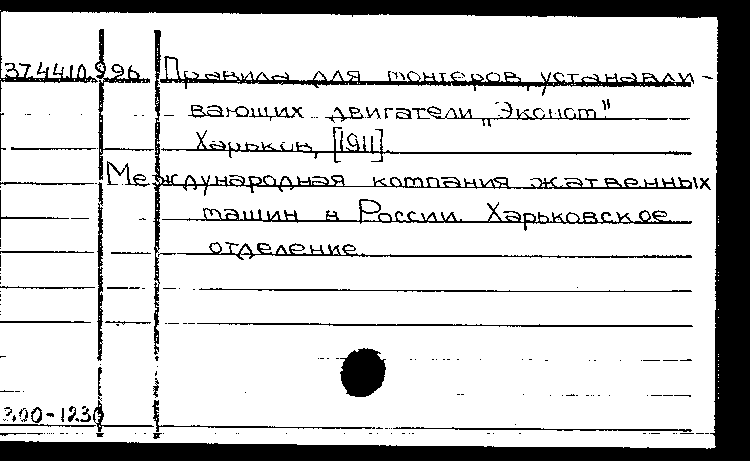 37.44.10.996 Правила для монтеров, устанавли-
вающих двигатели „Эконом"
Харьков, [1911].
Международная компания жатвенных
машин в России. Харьковское
отделение.
3.00-1230